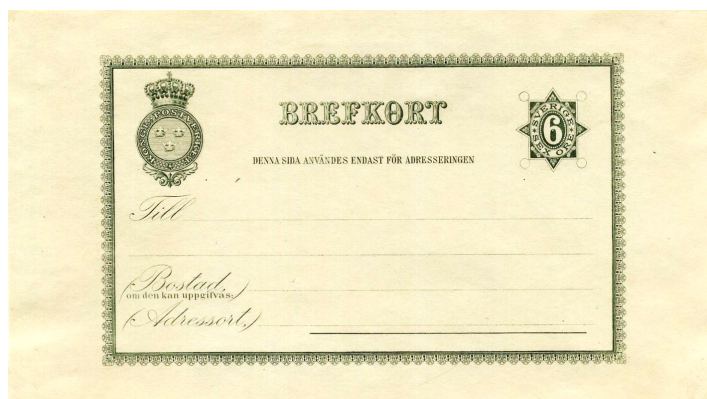 KONGL. POSTVERKET
BREFKORT
SVERIGE
6
SEX ÖRE
DENNA SIDA ANVÄNDES ENDAST FÖR ADRESSERINGEN
Till
(Bostad,
om den kan uppgifvas:)
(Adressort.)